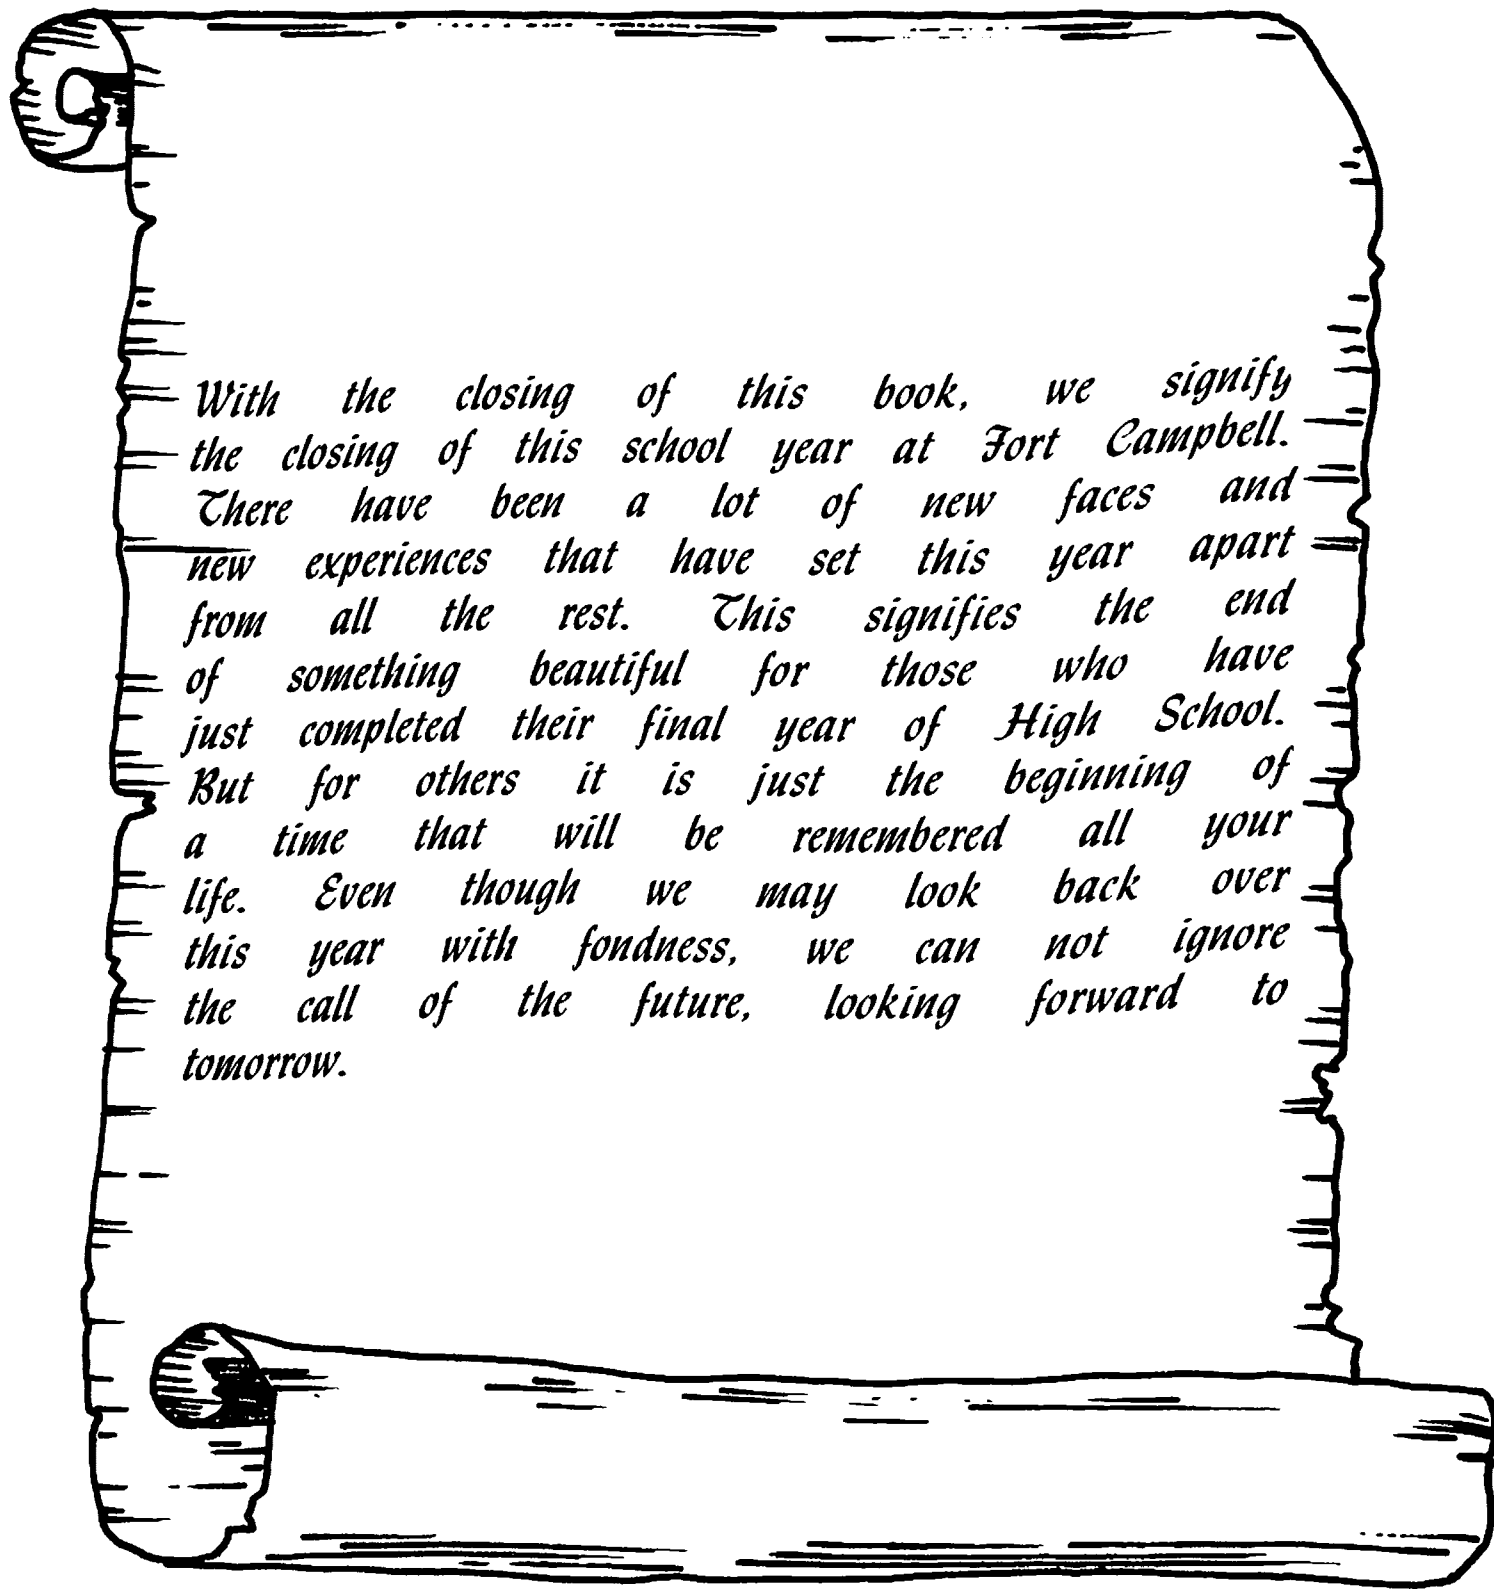 With the closing of this book, we signify
the closing of this school year at Fort Campbell.
There have been a lot of new faces and
new experiences that have set this year apart
from all the rest. This signifies the end
of something beautiful for those who have
just completed their final year of High School.
But for others it is just the beginning of
a time that will be remembered all your
life. Even though we may look back over
this year with fondness, we can not ignore
the call of the future, looking forward to
tomorrow.